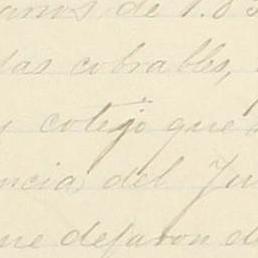 de 1.83
das cobrables,
y cotejo que
ncia del Ju
ue dejaron d